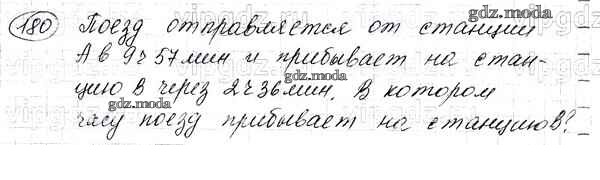 180 Поезд отправляется от станции
А в 9ч 57мин и прибывает на стан-
цию В через 2ч 36мин. В котором
часу поезд прибывает на станцию В?
gdz.moda
gdz.moda
gdz.moda
gdz.moda
gdz.moda
gdz.moda